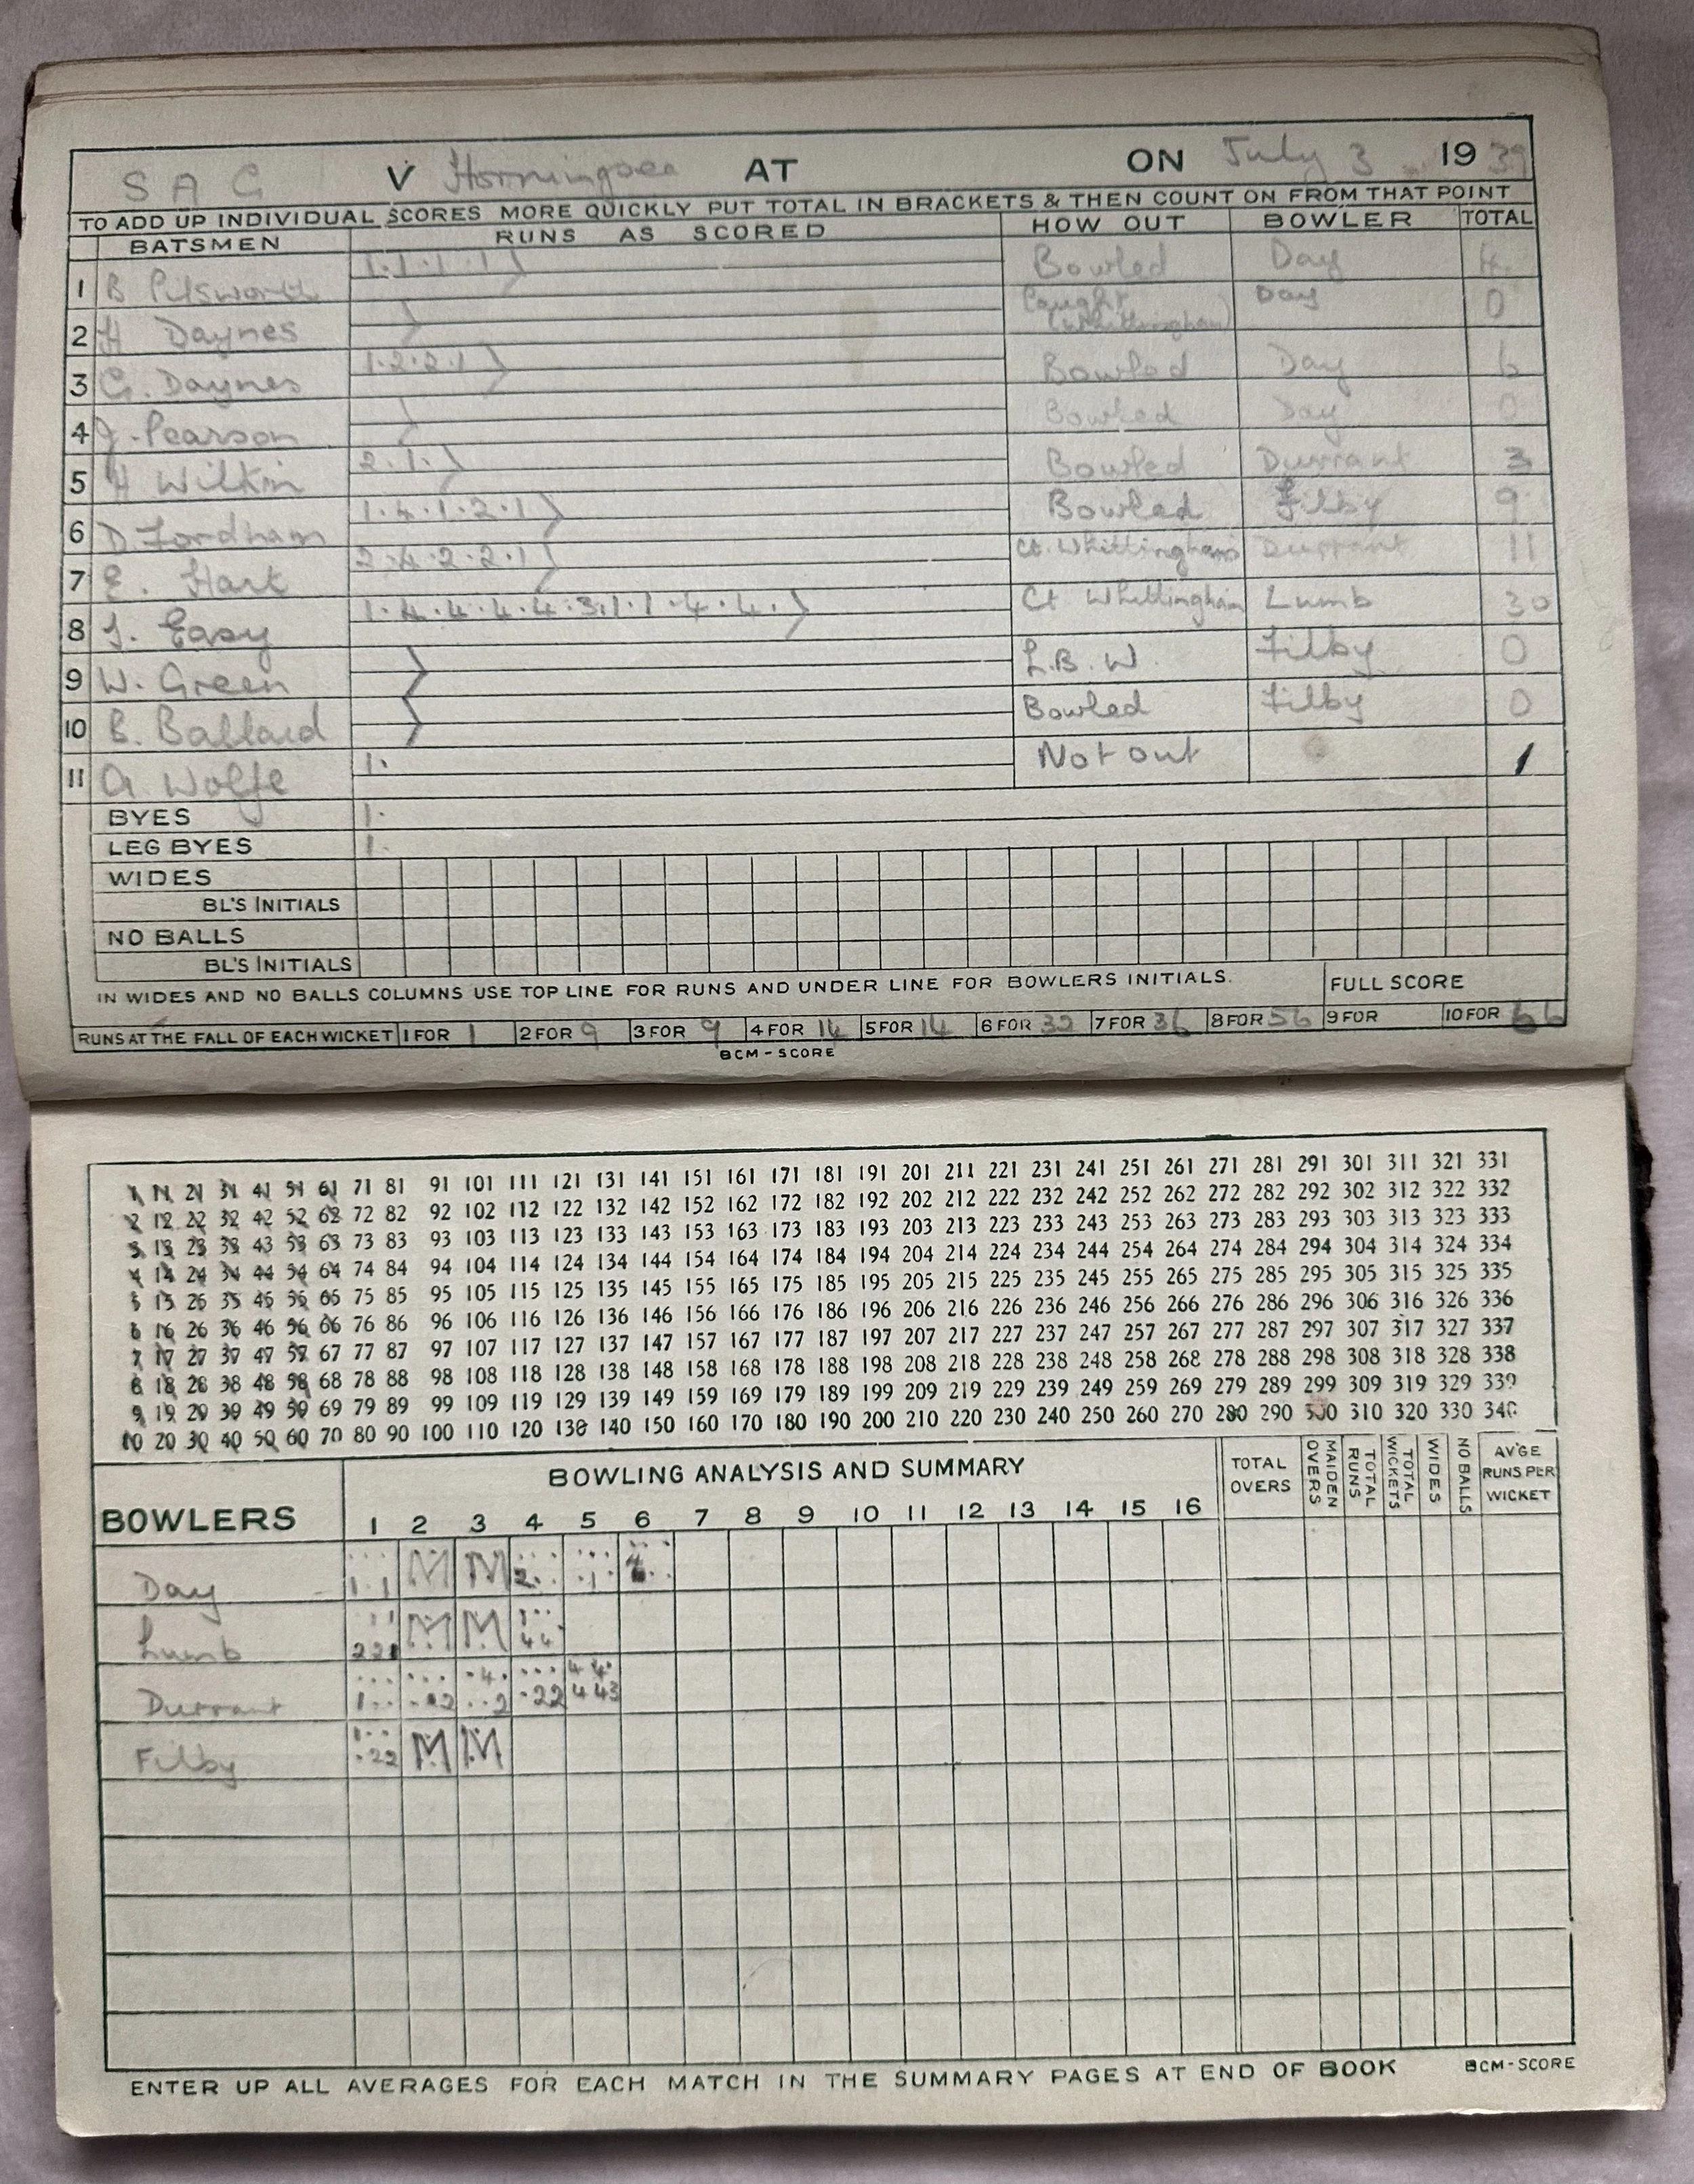 S A G V Horningsea AT ON July 3 1939
TO ADD UP INDIVIDUAL SCORES MORE QUICKLY PUT TOTAL IN BRACKETS & THEN COUNT ON FROM THAT POINT
BATSMEN RUNS AS SCORED HOW OUT BOWLER TOTAL
1 B Pilsworth 1.1.1.1 Bowled Day 4
2 H Daynes Caught (Whittingham) Day 0
3 G. Daynes 1.2.2.1 Bowled Day 6
4 J. Pearson Bowled Day 0
5 H Wilkin 2.1. Bowled Durrant 3
6 D. Fordham 1.4.1.2.1 Bowled Filby 9
7 E. Hart 2.4.2.2.1 Ct. Whittingham Durrant 11
8 Easy 1.4.4.4.4.3.1.1.4.4. Ct Whittingham Lumb 30
9 W. Green L.B.W. Filby 0
10 B. Ballard Bowled Filby 0
11 A. Wolfe 1. Not out 1
BYES 1.
LEG BYES 1.
WIDES
BL'S INITIALS
NO BALLS
BL'S INITIALS
IN WIDES AND NO BALLS COLUMNS USE TOP LINE FOR RUNS AND UNDER LINE FOR BOWLERS INITIALS. FULL SCORE
RUNS AT THE FALL OF EACH WICKET 1 FOR 1 2 FOR 9 3 FOR 9 4 FOR 14 5 FOR 14 6 FOR 32 7 FOR 36 8 FOR 56 9 FOR 10 FOR 66
BCM-SCORE
1 11 21 31 41 51 61 71 81 91 101 111 121 131 141 151 161 171 181 191 201 211 221 231 241 251 261 271 281 291 301 311 321 331
2 12 22 32 42 52 62 72 82 92 102 112 122 132 142 152 162 172 182 192 202 212 222 232 242 252 262 272 282 292 302 312 322 332
3 13 23 33 43 53 63 73 83 93 103 113 123 133 143 153 163 173 183 193 203 213 223 233 243 253 263 273 283 293 303 313 323 333
4 14 24 34 44 54 64 74 84 94 104 114 124 134 144 154 164 174 184 194 204 214 224 234 244 254 264 274 284 294 304 314 324 334
5 15 25 35 45 55 65 75 85 95 105 115 125 135 145 155 165 175 185 195 205 215 225 235 245 255 265 275 285 295 305 315 325 335
6 16 26 36 46 56 66 76 86 96 106 116 126 136 146 156 166 176 186 196 206 216 226 236 246 256 266 276 286 296 306 316 326 336
7 17 27 37 47 57 67 77 87 97 107 117 127 137 147 157 167 177 187 197 207 217 227 237 247 257 267 277 287 297 307 317 327 337
8 18 28 38 48 58 68 78 88 98 108 118 128 138 148 158 168 178 188 198 208 218 228 238 248 258 268 278 288 298 308 318 328 338
9 19 29 39 49 59 69 79 89 99 109 119 129 139 149 159 169 179 189 199 209 219 229 239 249 259 269 279 289 299 309 319 329 339
10 20 30 40 50 60 70 80 90 100 110 120 130 140 150 160 170 180 190 200 210 220 230 240 250 260 270 280 290 300 310 320 330 340
BOWLERS BOWLING ANALYSIS AND SUMMARY TOTAL OVERS MAIDEN OVERS TOTAL RUNS TOTAL WICKETS WIDES NO BALLS AV'GE RUNS PER WICKET
1 2 3 4 5 6 7 8 9 10 11 12 13 14 15 16
Day M M
Lumb M M
Durrant
Filby M M
ENTER UP ALL AVERAGES FOR EACH MATCH IN THE SUMMARY PAGES AT END OF BOOK BCM-SCORE